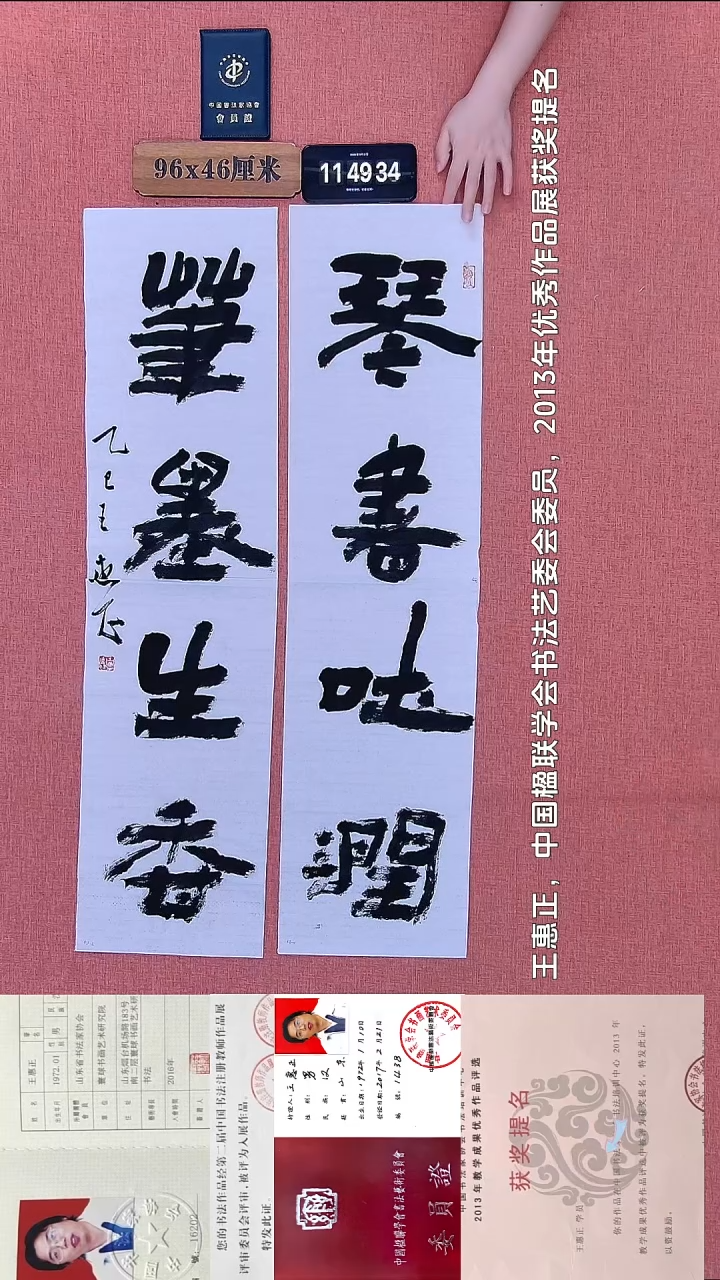 中国楹联学会
會員證
96x46厘米
11 49 34
琴書吐潤
筆墨生香
乙巳王惠正
王惠正，中国楹联学会书法艺委会委员，2013年优秀作品展获奖提名
姓名 王惠正 性别 男
1972.01
山东省书法家协会
寰球书画艺术研究院
山东烟台机场路183号
南二层寰球书画艺术研
书法
2016年
您的书法作品经第二届中国书法注册教师作品展
评审委员会评审，被评为入展作品。
特发此证。
持证人：王惠正
性别：男
民族：汉
籍贯：山东
出生日期：1972年1月10日
发证日期：2017年2月21日
编号：1438
中国楹联學會書法藝術委員會
委員證
2013年教学成果优秀作品评选
获奖提名
王惠正 学员
你的作品在中国书法家协会书法培训中心2013年
教学成果优秀作品评选中被评为获奖提名，特发此证，
以资鼓励。